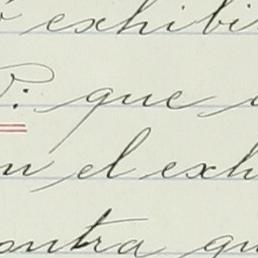 exhibi
P: que
n el exh
ontra qu